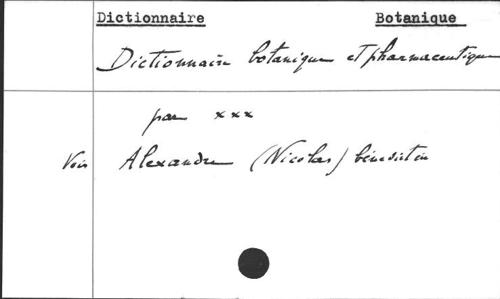 Dictionnaire Botanique
Dictionnaire botanique et pharmaceutique
par xxx
Voir Alexandre (Nicolas) bénédictin